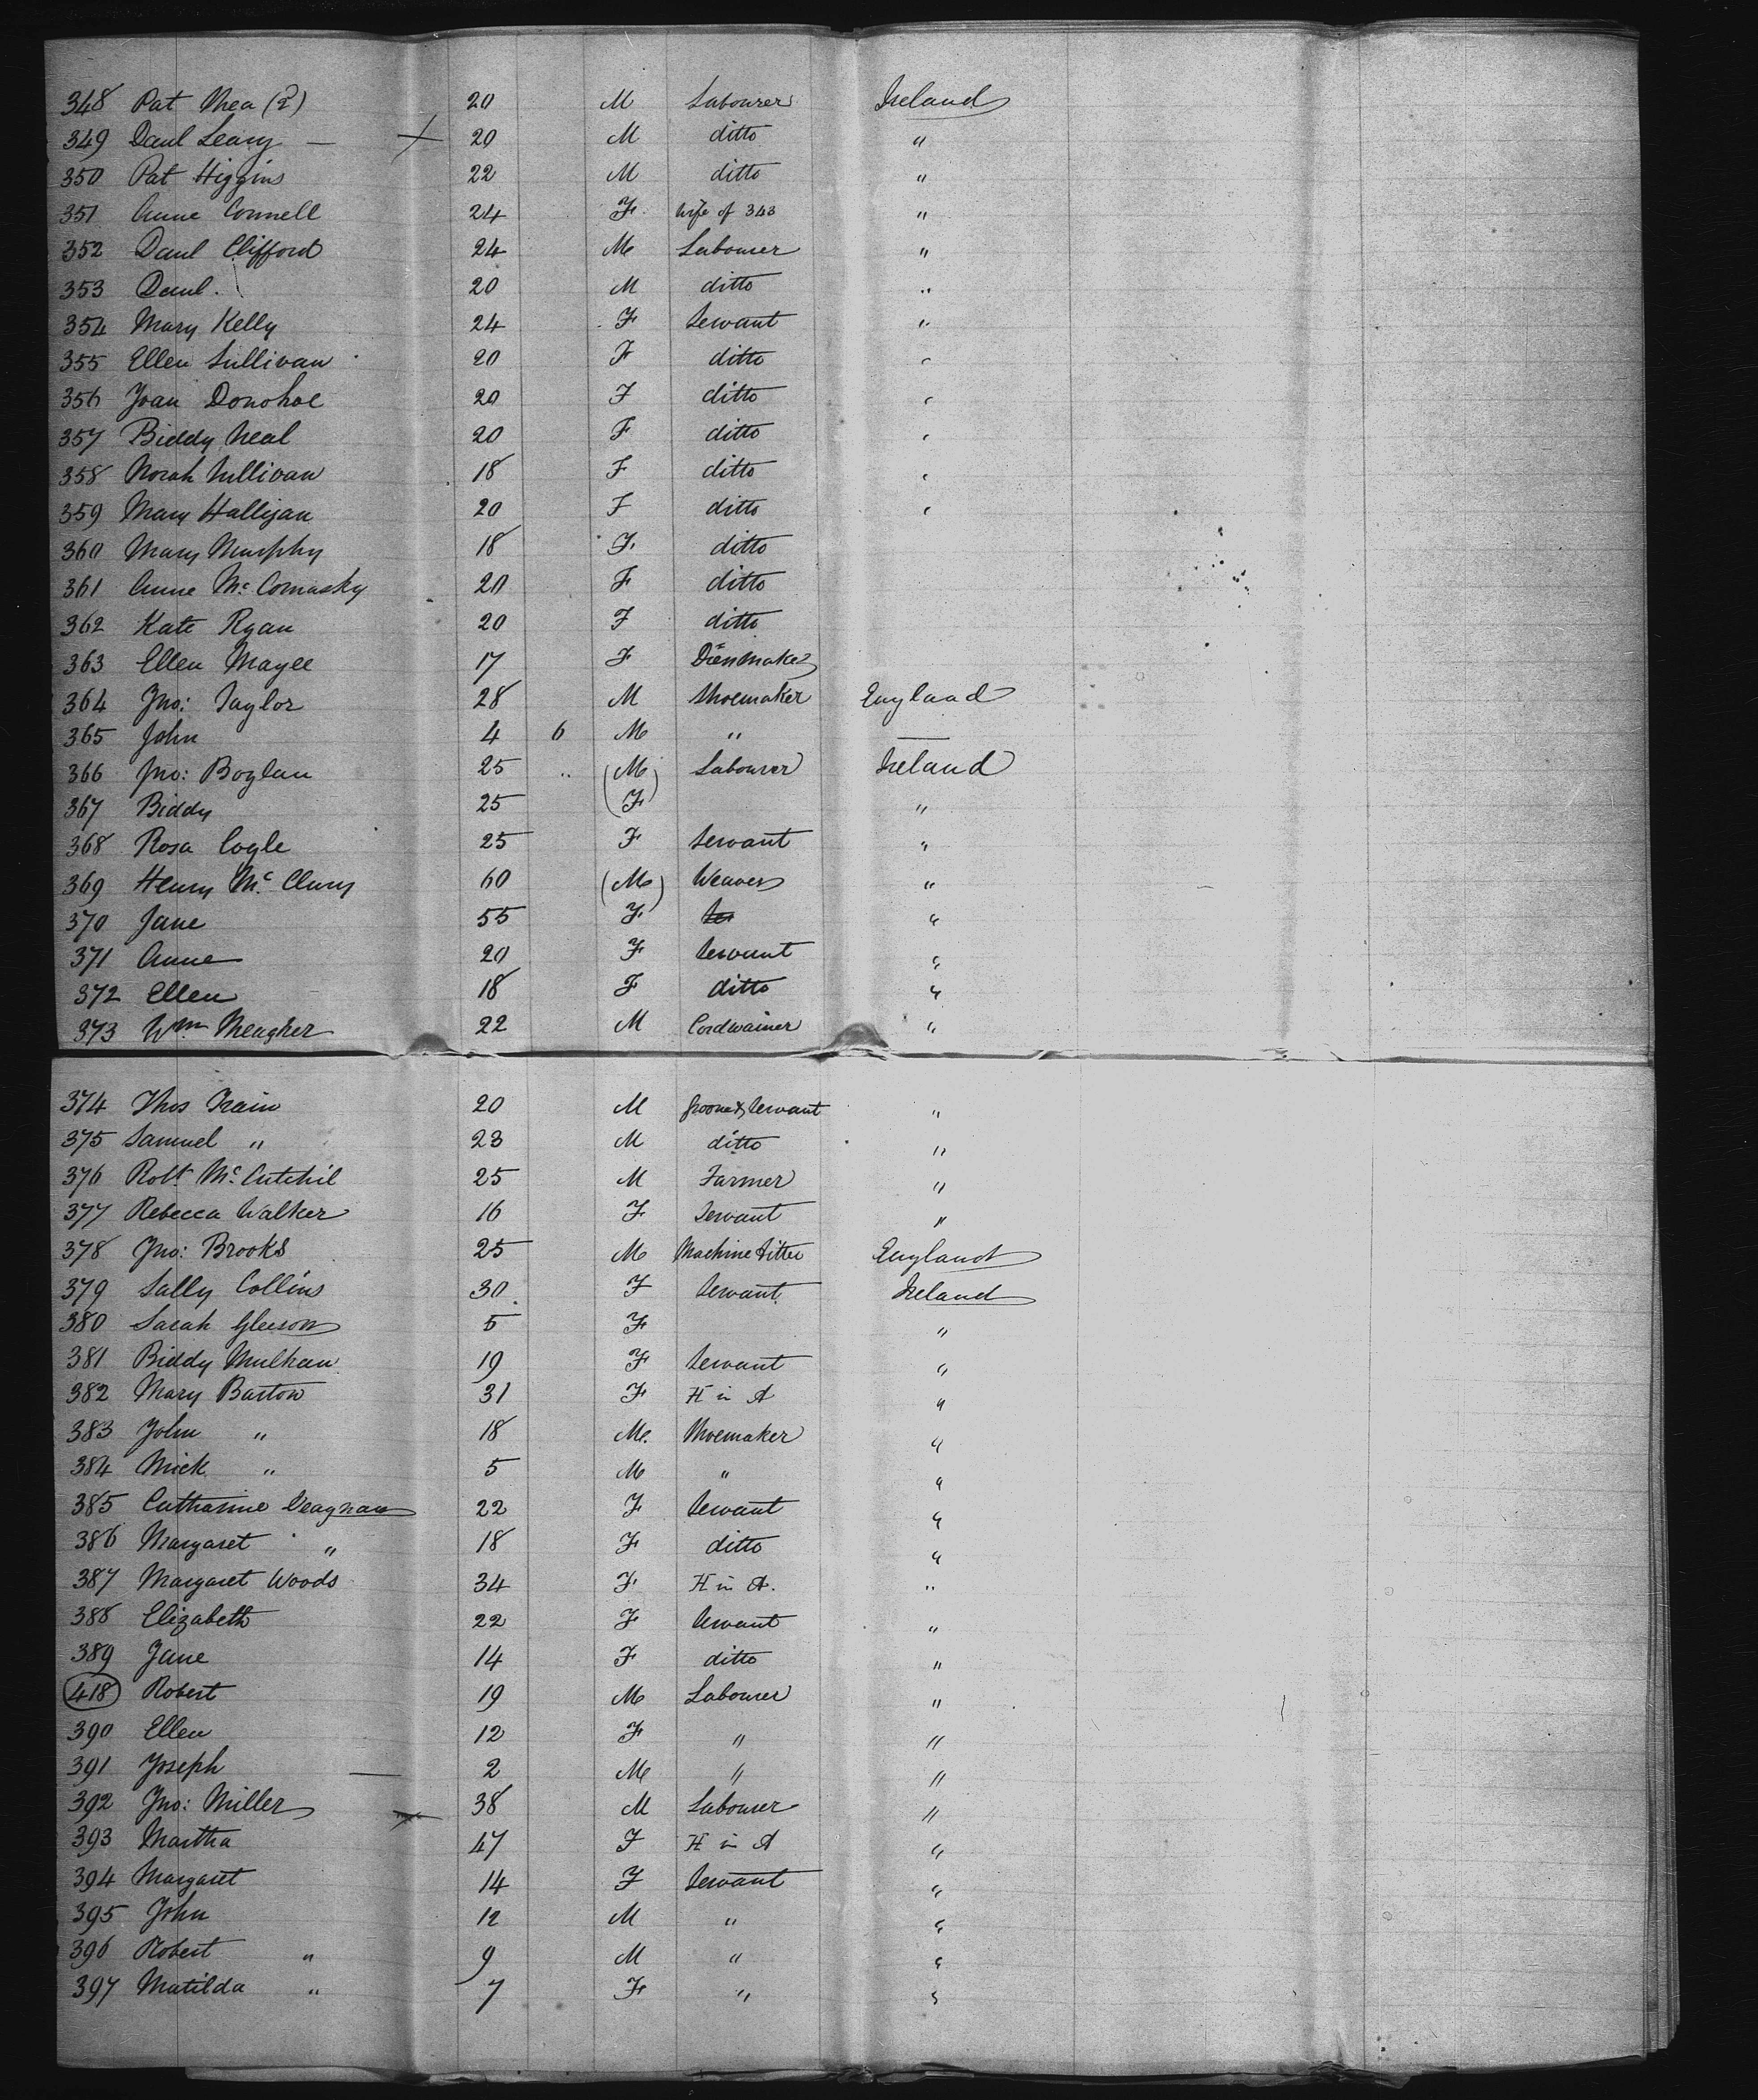 348 Pat Shea (2) 20 M Labourer Ireland
349 Danl Leary — 20 M ditto "
350 Pat Higgins 22 M ditto "
351 Anne Connell 24 F wife of 343 "
352 Danl Clifford 24 M Labourer "
353 Danl. 20 M ditto "
354 Mary Kelly 24 F Servant "
355 Ellen Sullivan 20 F ditto "
356 Joan Donohoe 20 F ditto "
357 Biddy Neal 20 F ditto "
358 Norah Sullivan 18 F ditto "
359 Mary Halligan 20 F ditto "
360 Mary Murphy 18 F. ditto
361 Anne Mc Comasky 20 F ditto
362 Kate Ryan 20 F ditto
363 Ellen Magee 17 F Dressmaker
364 Jno: Taylor 28 M Shoemaker England
365 John 4 6 M " —
366 Jno: Boylan 25 " (M) Labourer Ireland
367 Biddy 25 (F) "
368 Rosa Cogle 25 F Servant "
369 Henry Mc Clury 60 (M) Weaver "
370 Jane 55 F "
371 Anne 20 F Servant "
372 Ellen 18 F ditto "
373 Wm Meagher 22 M Cordwainer "
374 Thos Train 20 M Groom & Servant "
375 Samuel " 23 M ditto "
376 Robt Mc Cutchil 25 M Farmer "
377 Rebecca Walker 16 F Servant "
378 Jno: Brooks 25 M Machine fitter England
379 Sally Collins 30 F Servant Ireland
380 Sarah Gleeson 5 F "
381 Biddy Mulhan 19 F Servant "
382 Mary Barton 31 F H in A "
383 John " 18 M. Shoemaker "
384 Mick " 5 M " "
385 Catharine 22 F Servant "
386 Margaret " 18 F ditto "
387 Margaret Woods 34 F H in A. "
388 Elizabeth 22 F Servant "
389 Jane 14 F ditto "
418 Robert 19 M Labourer "
390 Ellen 12 F " "
391 Joseph — 2 M " "
392 Jno: Miller 38 M Labourer "
393 Martha 47 F H in A "
394 Margaret 14 F Servant "
395 John 12 M " "
396 Robert " 9 M " "
397 Matilda " 7 F " "